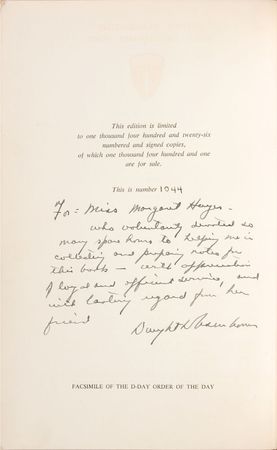 This edition is limited
to one thousand four hundred and twenty-six
numbered and signed copies,
of which one thousand four hundred and one
are for sale.
This is number 1044
For: Miss Margaret Hayes -
who voluntarily devoted so
many spare hours to helping me in
collecting and preparing notes for
this book — with appreciation
of loyal and efficient service, and
with lasting regard from her
friend
Dwight D Eisenhower
FACSIMILE OF THE D-DAY ORDER OF THE DAY